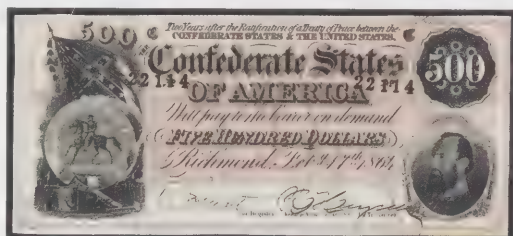 Two Years after the Ratification of a Treaty of Peace between the
CONFEDERATE STATES & THE UNITED STATES.
500
Confederate States
500
22 1
4
22 1
4
OF AMERICA
Will pay to the bearer on demand
FIVE HUNDRED DOLLARS
Richmond, Feb. 17th, 1864